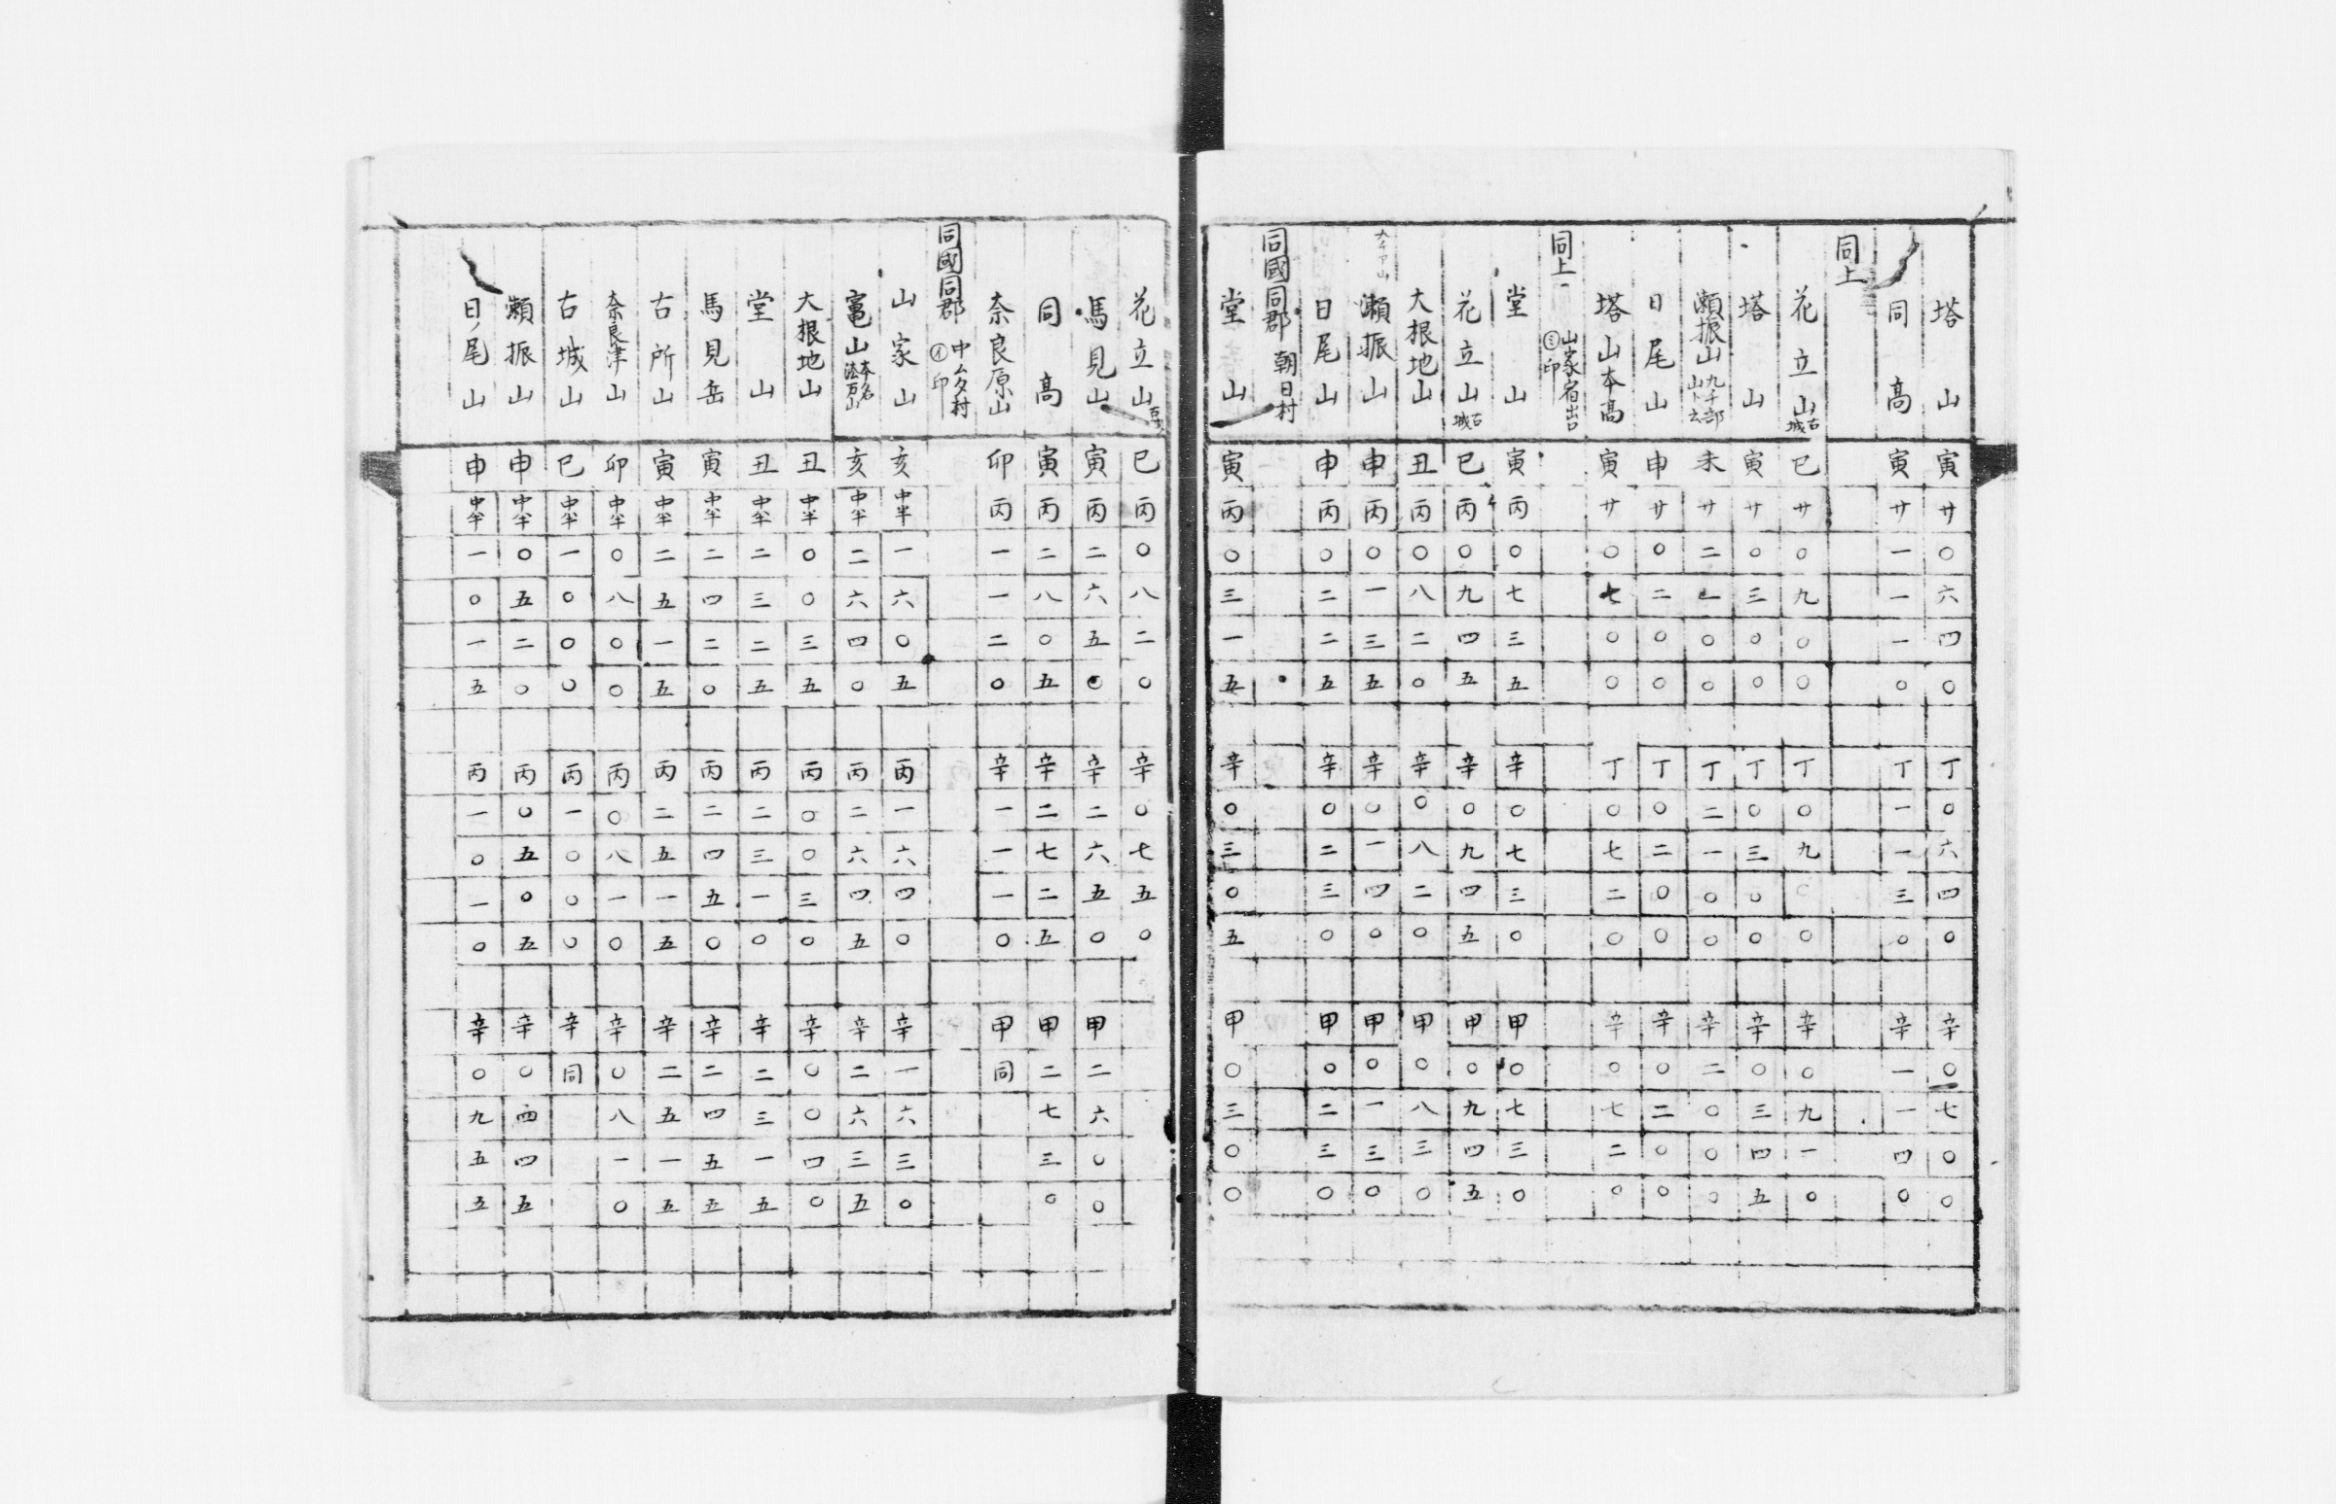 塔山 寅 廿 〇 六 四 〇 丁 〇 六 四 〇 辛 〇 七 〇 〇
同高 寅 廿 一 一 一 〇 丁 一 一 三 〇 辛 一 一 四 〇
同上
花立山 古城 巳 廿 〇 九 〇 〇 丁 〇 九 〇 〇 辛 〇 九 一 〇
塔山 寅 廿 〇 三 〇 〇 丁 〇 三 〇 〇 辛 〇 三 四 五
瀬振山 九千部山ト云 未 廿 二 一 〇 〇 丁 二 一 〇 〇 辛 二 〇 〇 〇
日尾山 申 廿 〇 二 〇 〇 丁 〇 二 〇 〇 辛 〇 二 〇 〇
塔山本高 寅 廿 〇 七 〇 〇 丁 〇 七 二 〇 辛 〇 七 二 〇
同上 山家宿出口 印
堂山 寅 丙 〇 七 三 五 辛 〇 七 三 〇 甲 〇 七 三 〇
花立山 古城 巳 丙 〇 九 四 五 辛 〇 九 四 五 甲 〇 九 四 五
大根地山 丑 丙 〇 八 二 〇 辛 〇 八 二 〇 甲 〇 八 三 〇
瀬振山 申 丙 〇 一 三 五 辛 〇 一 四 〇 甲 〇 一 三 〇
日尾山 申 丙 〇 二 二 五 辛 〇 二 三 〇 甲 〇 二 三 〇
同國同郡 朝日村
堂山 寅 丙 〇 三 一 五 辛 〇 三 〇 五 甲 〇 三 〇 〇
花立山 巳 丙 〇 八 二 〇 辛 〇 七 五 〇
馬見山 寅 丙 二 六 五 〇 辛 二 六 五 〇 甲 二 六 〇 〇
同高 寅 丙 二 八 〇 五 辛 二 七 二 五 甲 二 七 三 〇
奈良原山 卯 丙 一 一 二 〇 辛 一 一 一 〇 甲 同
同國同郡 中ムタ村 印
山家山 亥 中半 一 六 〇 五 丙 一 六 四 〇 辛 一 六 三 〇
竃山 本名 亥 中半 二 六 四 〇 丙 二 六 四 五 辛 二 六 三 五
大根地山 丑 中半 〇 〇 三 五 丙 〇 〇 三 〇 辛 〇 〇 四 〇
堂山 丑 中半 二 三 二 五 丙 二 三 一 〇 辛 二 三 一 五
馬見岳 寅 中半 二 四 二 〇 丙 二 四 五 〇 辛 二 四 五 五
古所山 寅 中半 二 五 一 五 丙 二 五 一 五 辛 二 五 一 五
奈良津山 卯 中半 〇 八 〇 〇 丙 〇 八 一 〇 辛 〇 八 一 〇
古城山 巳 中半 一 〇 〇 〇 丙 一 〇 〇 〇 辛 同
瀬振山 申 中半 〇 五 二 〇 丙 〇 五 〇 五 辛 〇 四 四 五
日ノ尾山 申 中半 一 〇 一 五 丙 一 〇 一 〇 辛 〇 九 五 五